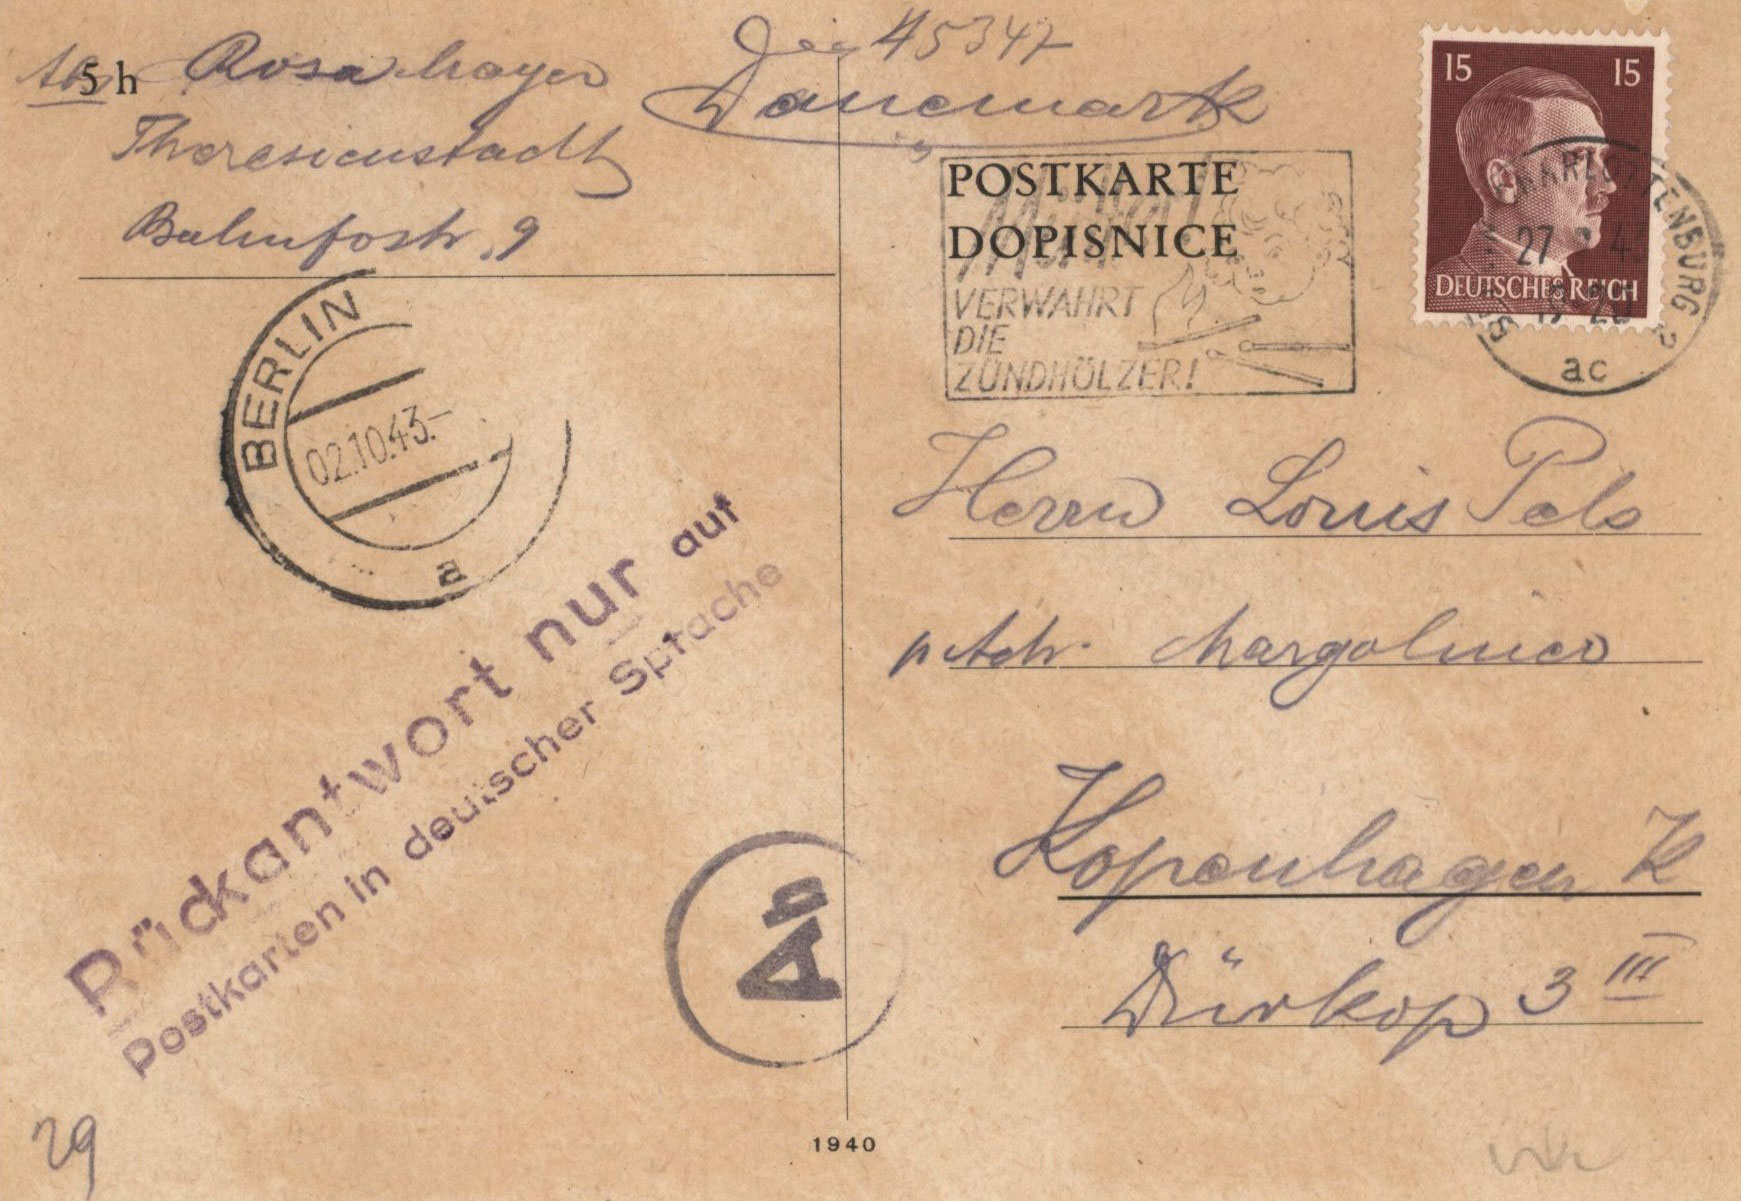 5 h
Abs. Rosa Mayer
Theresienstadt
Bahnhofstr. 9
45347
Danemark
15 15
DEUTSCHES REICH
POSTKARTE
DOPISNICE
VERWAHRT
DIE
ZÜNDHÖLZER!
CHARLOTTENBURG 2
27
ac
BERLIN
02.10.43.-
a
Herrn Louis Pels
p. Adr. Margolinco
Kopenhagen K
Dürkop 3 III
Rückantwort nur auf
Postkarten in deutscher Sprache
Ab
29
1940